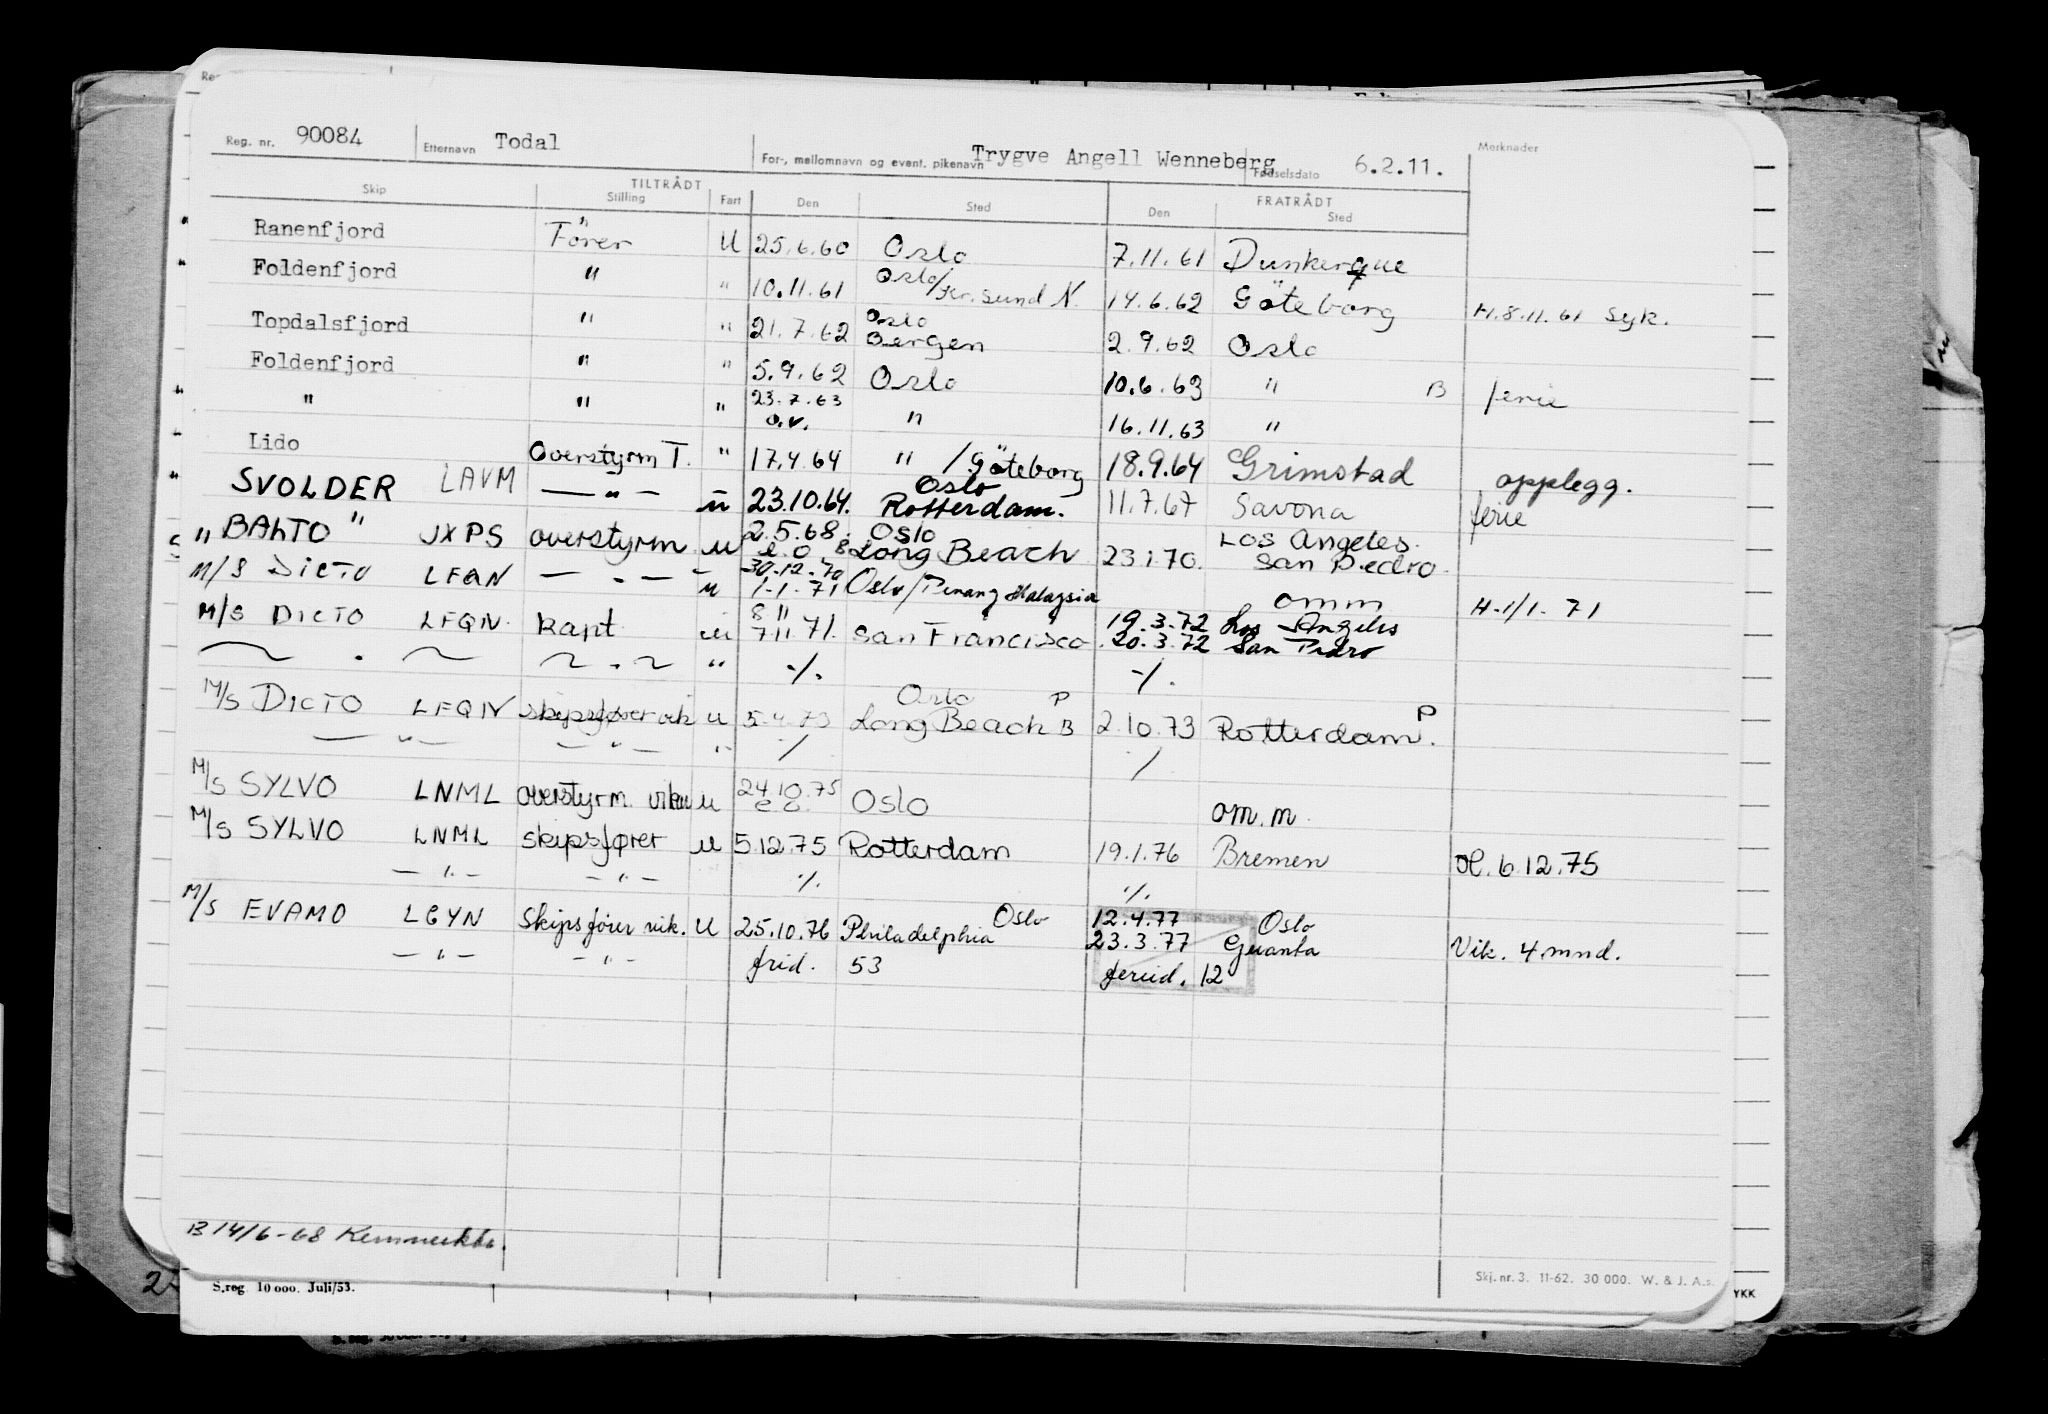 Reg. nr. 90084 Etternavn Todal For-, mellomnavn og event. pikenavn Trygve Angell Wenneberg Fødselsdato 6.2.11. Merknader
TILTRÅDT FRATRÅDT
Skip Stilling Fart Den Sted Den Sted
Ranenfjord Förer U 25.6.60 Oslo 7.11.61 Dunkerque
Foldenfjord " " 10.11.61 Oslo/Kr.sund N. 14.6.62 Göteborg H.8.11.61 Syk.
Topdalsfjord " " 21.7.62 Oslo Bergen 2.9.62 Oslo
Foldenfjord " " 5.9.62 Oslo 10.6.63 " B ferie
" " " 23.7.63 o.v. " 16.11.63 "
Lido Overstyrm T. " 17.4.64 " /Göteborg 18.9.64 Grimstad opplegg.
SVOLDER LAVM — " — u 23.10.64. Oslo Rotterdam. 11.7.67 Savona ferie
" BALTO " JXPS overstyrm u 2.5.68. Oslo Long Beach 23.1.70. Los Angeles. San Pedro.
M/S DICTO LFQN — " — u 30.12.70 1.1.71 Oslo/Penang Malaysia omm H.1/1-71
M/S DICTO LFQN. kapt u 8 11 7.11.71. San Francisco 19.3.72 Los Angeles
20.3.72 San Pedro
" " ./. ./.
M/S DICTO LFQN skipsfører vik u 5.4.73 Oslo P Long Beach B 2.10.73 Rotterdam. P
— " — — " — " ./. ./.
M/S SYLVO LNML overstyrm. vikar u 24.10.75 e.o. Oslo om.m.
M/S SYLVO LNML skipsfører u 5.12.75 Rotterdam 19.1.76 Bremen H. 6.12.75
— " — — " — ./. ./.
M/S EVAMO LCYN Skipsfører vik. U 25.10.76 Philadelphia Oslo 12.4.77 Oslo
23.3.77 Guanta Vik. 4 mnd.
— " — — " — frid. 53 ferid. 12
B 14/6-68
S.reg. 10 000. Juli/53.
Skj. nr. 3. 11-62. 30 000. W. & J. A.s.
YKK